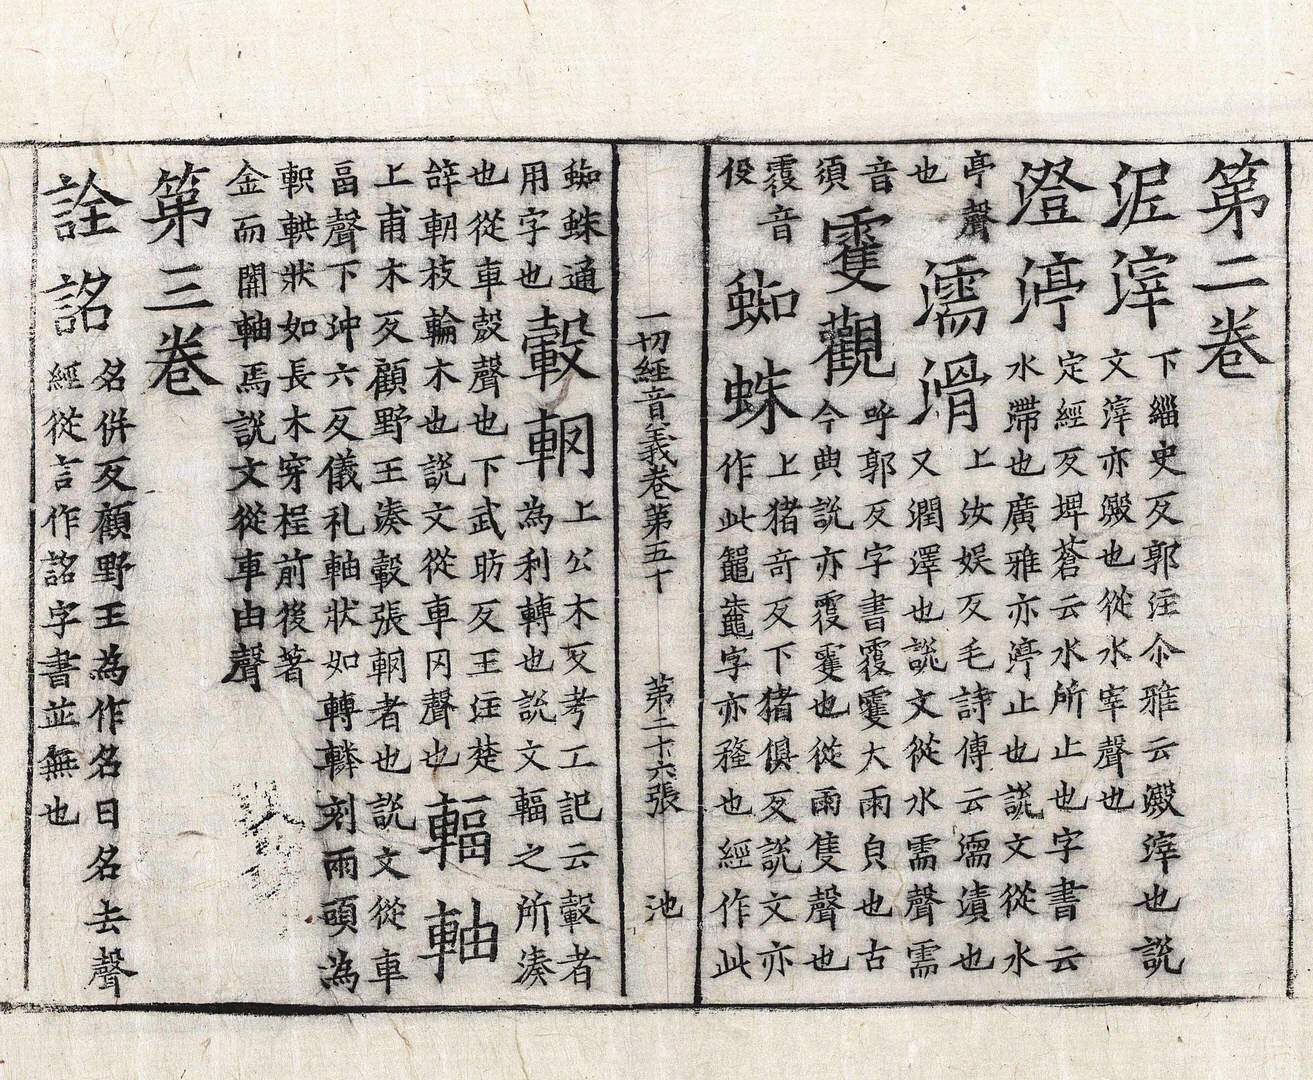 第二卷
泥滓
下緇史反郭注尒雅云澱滓也說
文滓亦澱也從水宰聲也
澄渟
定經反埤蒼云水所止也字書云
水滯也廣雅亦渟止也說文從水
亭聲
也
濡滑
上汝娱反毛詩傳云濡漬也
又潤澤也說文從水需聲需
音
須
䨥觀
呼郭反字書䨱䨥大雨皃也古
今典說亦䨱䨥也從雨隻聲也
䨱音
役
蜘蛛
上猪奇反下猪俱反說文亦
作此鼅鼄字亦蝥也經作此
一切經音義卷第五十 第二十六張 池
蜘蛛通
用字也
轂輞
上公木反考工記云轂者
為利轉也說文輻之所湊
也從車㱿聲也下武昉反王注楚
辝輞枝輪木也說文從車冈聲也
輻軸
上甫木反顧野王湊轂張輞者也說文從車
畐聲下沖六反儀礼軸狀如轉轔刻兩頭為
軹輁狀如長木穿桯前後著
金而關軸焉說文從車由聲
第三卷
詮詺
名併反顧野王為作名曰名去聲
經從言作詺字書並無也